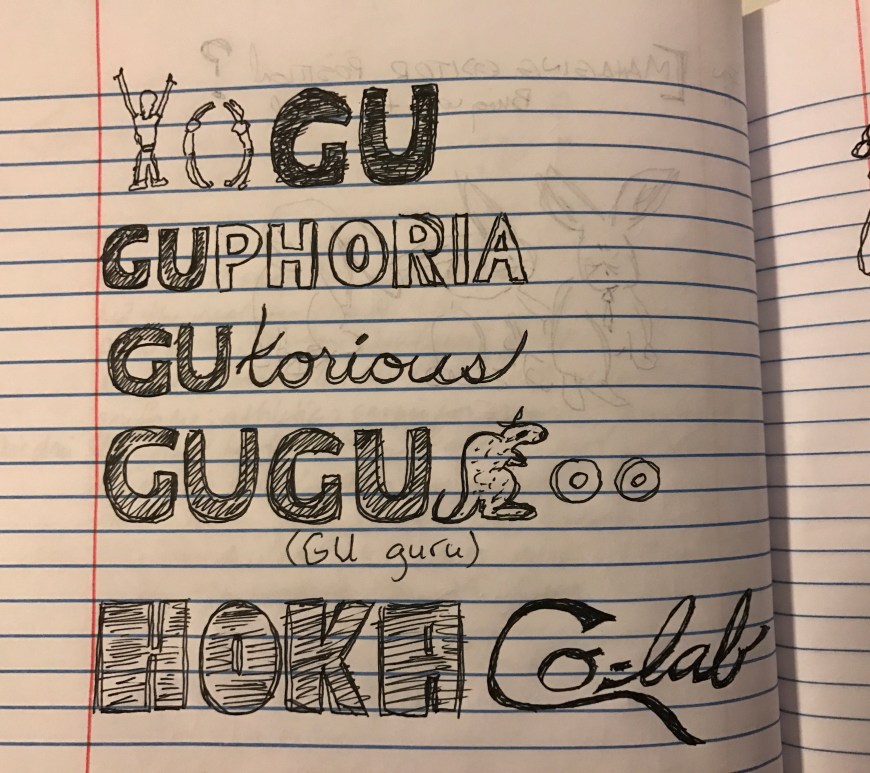 YOGU
GUPHORIA
GUtorious
GUGU OO
(GU guru)
HOKA Co-lab